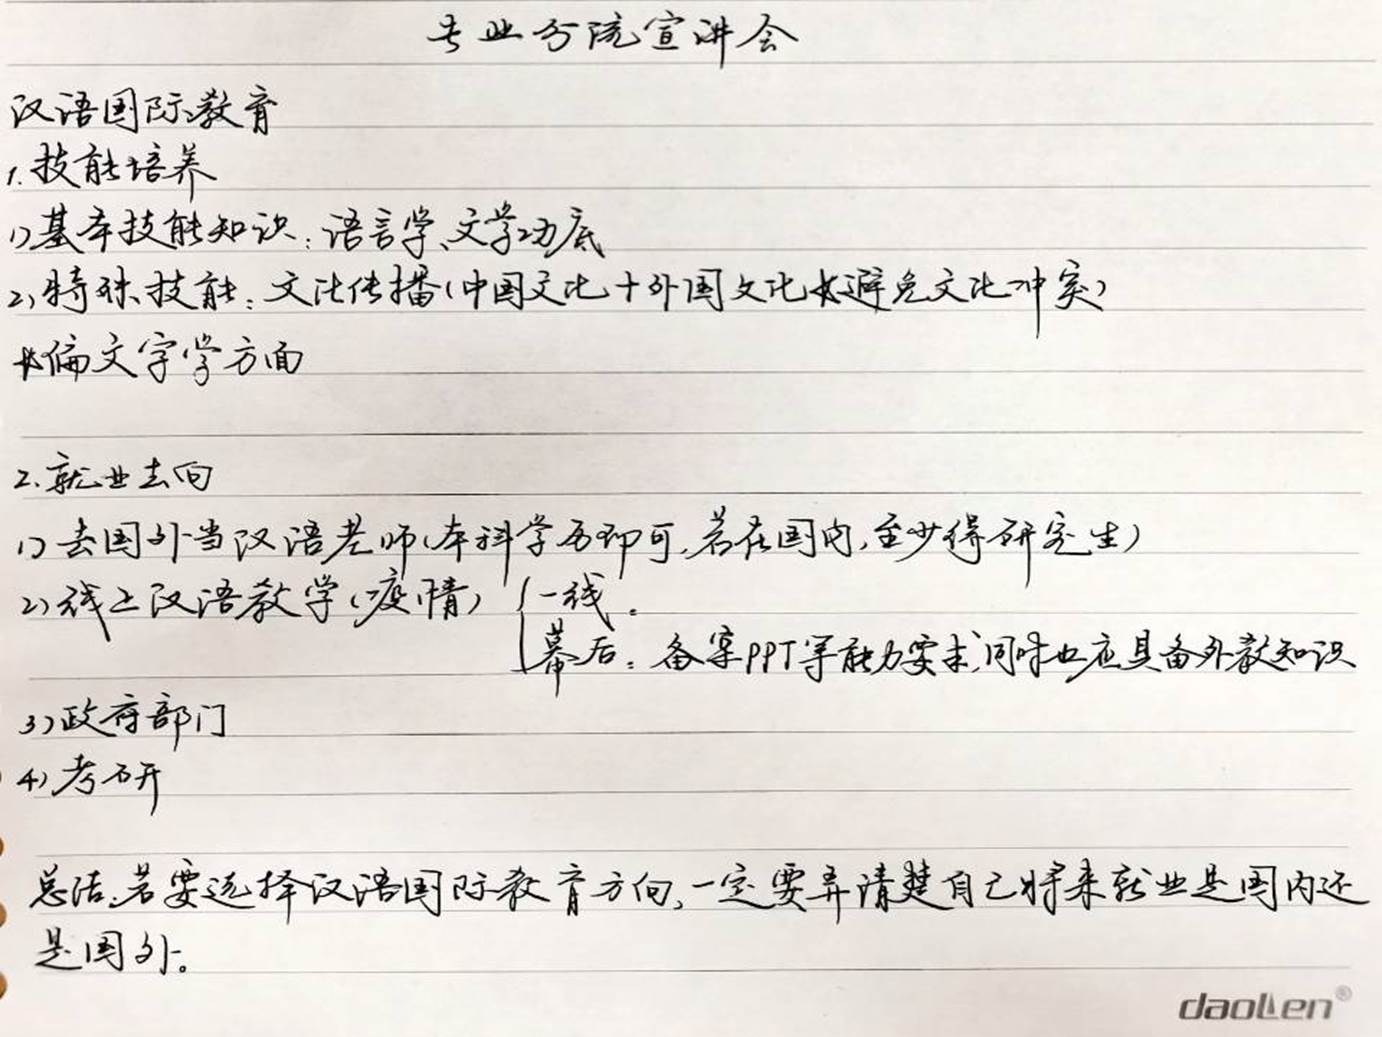 专业分流宣讲会
汉语国际教育
1.技能培养
1)基本技能知识:语言学、文学功底
2)特殊技能:文化传播(中国文化+外国文化*避免文化冲突)
*偏文字学方面
2.就业去向
1)去国外当汉语老师(本科学历即可,若在国内,至少得研究生)
2)线上汉语教学(疫情) 一线。
幕后:备案PPT等能力要求,同时也应具备外教知识
3)政府部门
4)考研
总结:若要选择汉语国际教育方向,一定要弄清楚自己将来就业是国内还
是国外。
daoLen®